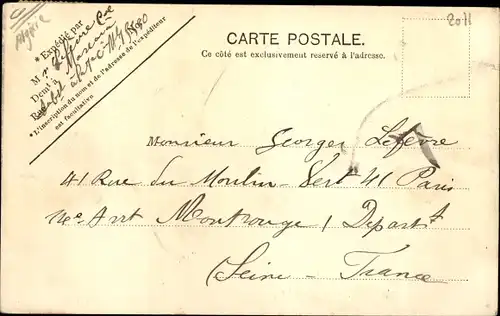 Algérie
* Expédié par
M
Dem t à Mascara
Rue
* L'inscription du nom et de l'adresse de l'expéditeur
est facultative
CARTE POSTALE.
Ce côté est exclusivement reservé à l'adresse.
2011
Monsieur Georges Lefèvre
41 Rue du Moulin-Vert 41 Paris
14e Arrt Montrouge / Départt
(Seine - France